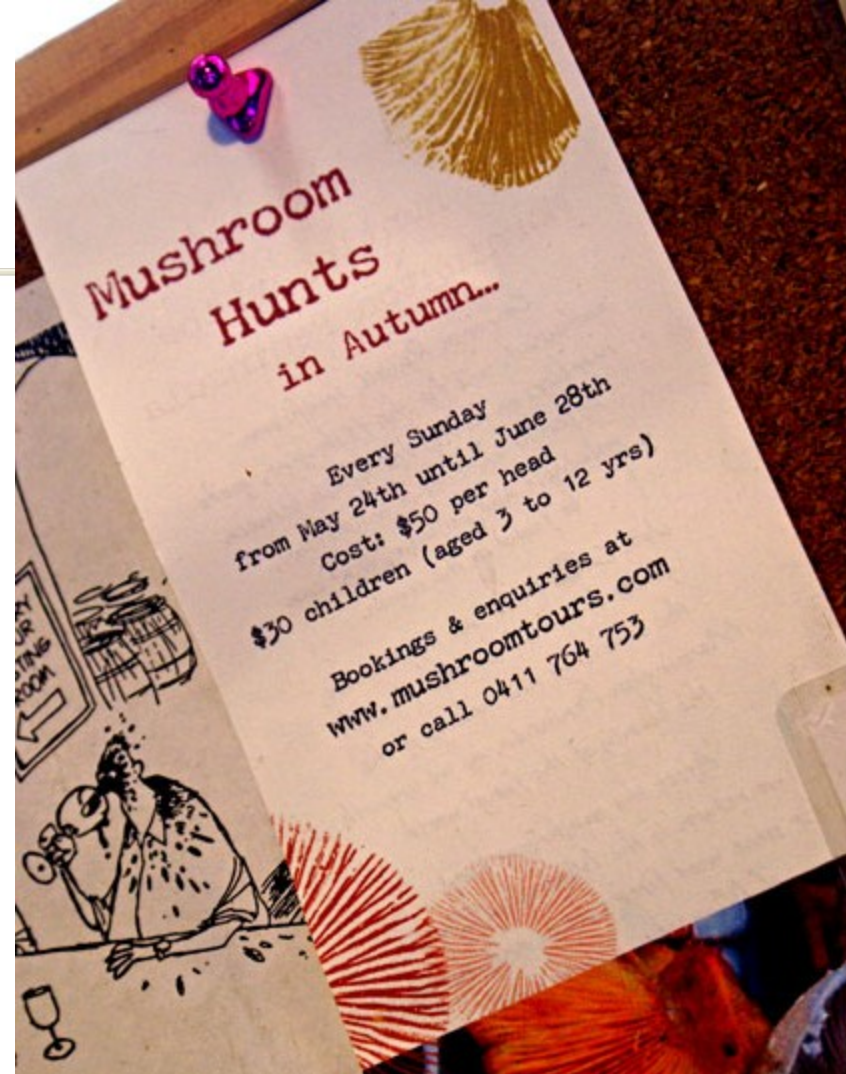 Mushroom
Hunts
in Autumn...
Every Sunday
from May 24th until June 28th
Cost: $50 per head
$30 children (aged 3 to 12 yrs)
Bookings & enquiries at
www.mushroomtours.com
or call 0411 764 753